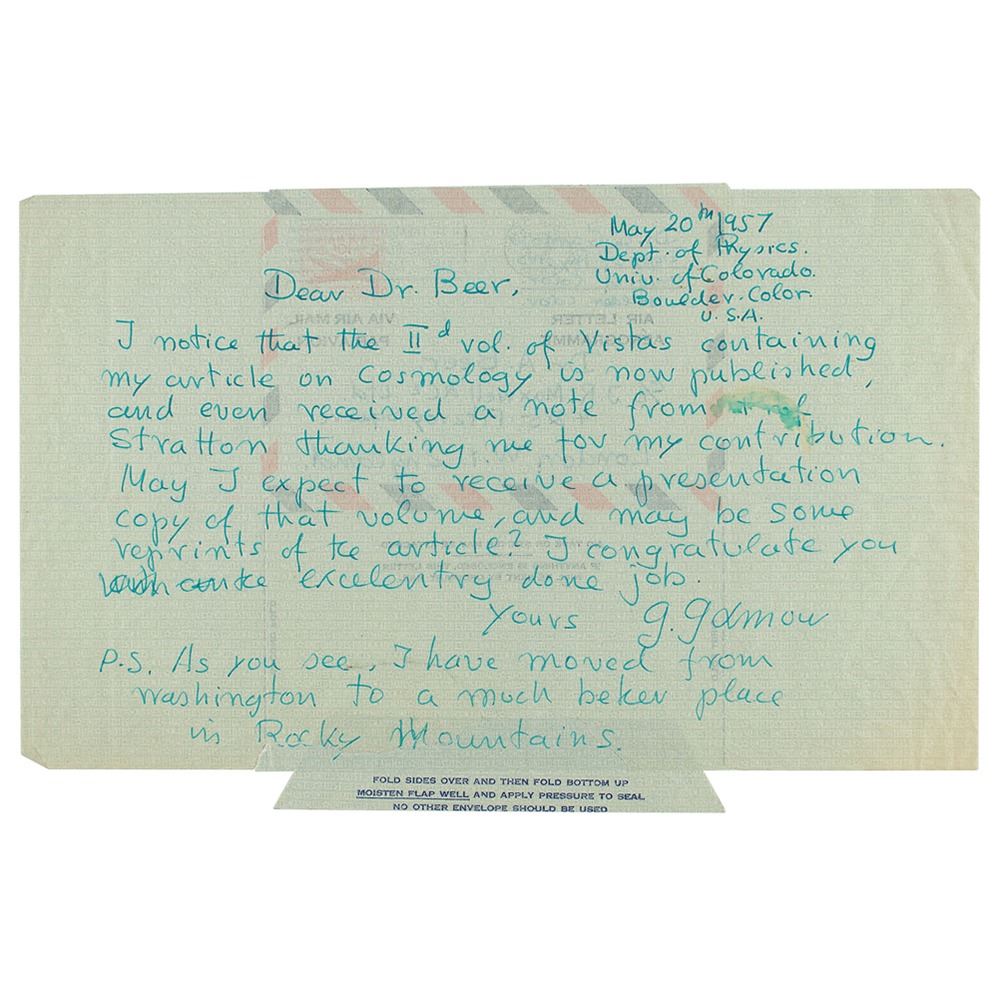 May 20th 1957
Dept. of Physics.
Univ. of Colorado.
Boulder. Color.
U.S.A.
Dear Dr. Beer,
I notice that the IId vol. of Vistas containing
my article on Cosmology is now published,
and even received a note from
Stratton thanking me for my contribution.
May I expect to receive a presentation
copy of that volume, and may be some
reprints of the article? I congratulate you
excelentry done job.
Yours G. Gamow
P.S. As you see, I have moved from
Washington to a much better place
in Rocky Mountains.
FOLD SIDES OVER AND THEN FOLD BOTTOM UP
MOISTEN FLAP WELL AND APPLY PRESSURE TO SEAL
NO OTHER ENVELOPE SHOULD BE USED